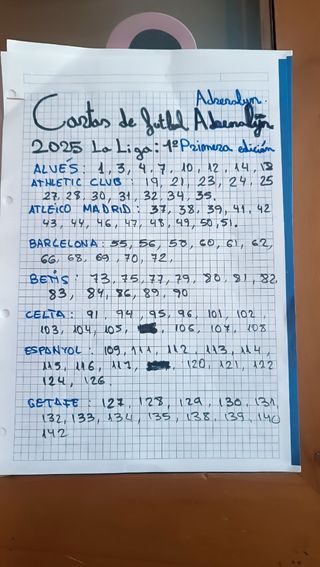 Adrenalyn.
Cartas de fútbol Adrenalyn
2025 La Liga: 1ª Primera edición
ALVÉS: 1, 3, 4, 7, 10, 12, 14, 18
ATHLETIC CLUB: 19, 21, 23, 24, 25
27, 28, 30, 31, 32, 34, 35.
ATLEICO MADRID: 37, 38, 39, 41, 42
43, 44, 46, 47, 48, 49, 50, 51.
BARCELONA: 55, 56, 58, 60, 61, 62,
66, 68, 69, 70, 72,
BETIS: 73, 75, 77, 79, 80, 81, 82
83, 84, 86, 89, 90
CELTA: 91, 94, 95, 96, 101, 102,
103, 104, 105, 106, 107, 108
ESPANYOL: 109, 111, 112, 113, 114,
115, 116, 117, 120, 121, 122
124, 126.
GETAFE: 127, 128, 129, 130, 131,
132, 133, 134, 135, 138, 139, 140
142